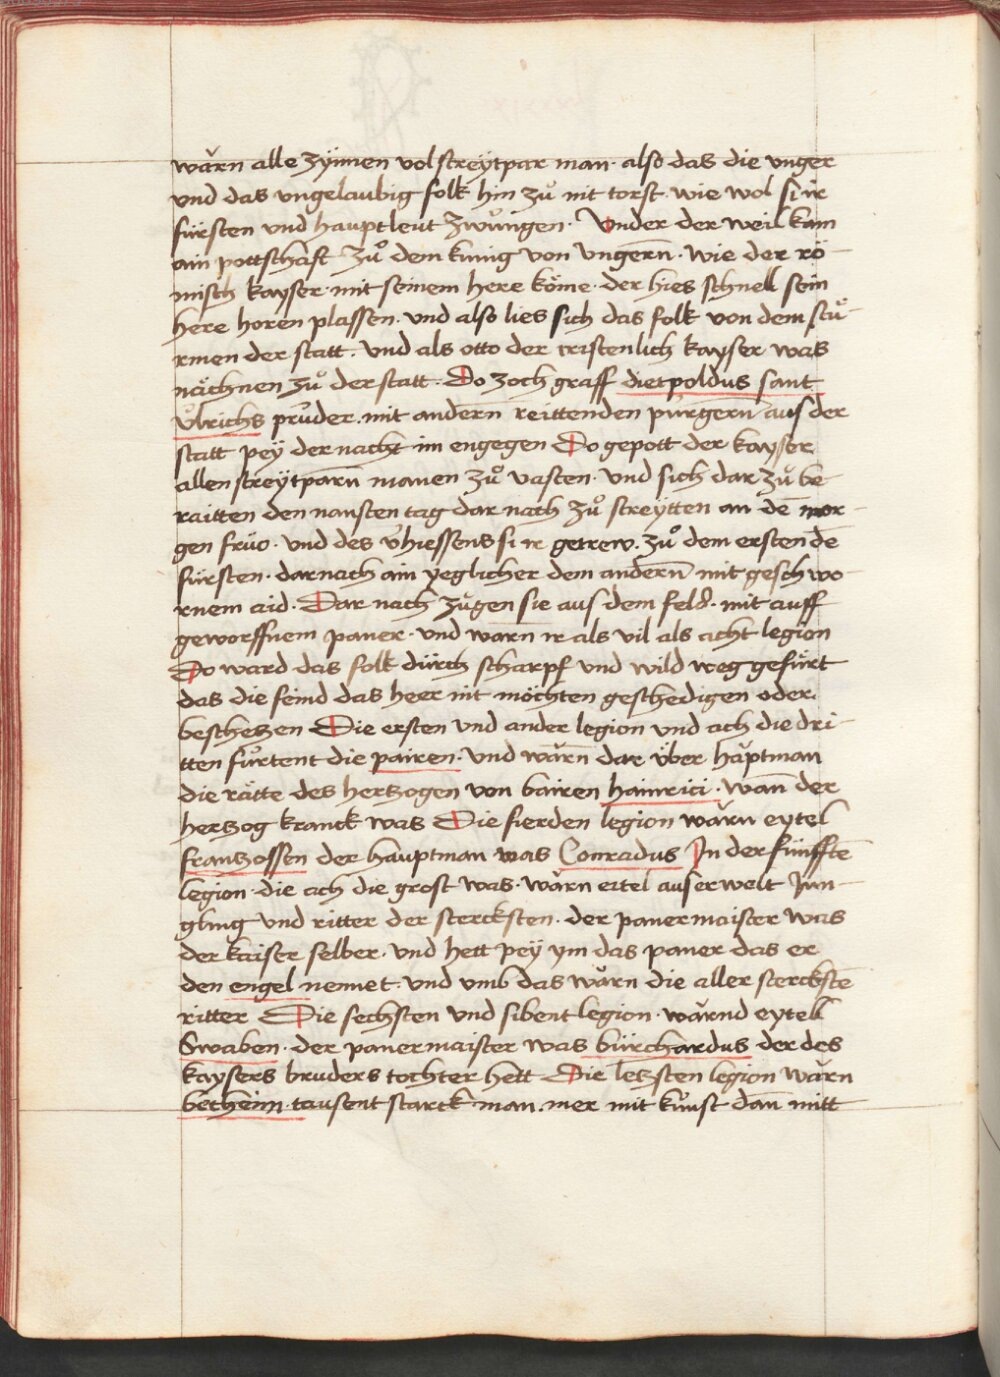 wǎrn alle zÿmen vol streÿtpar man · also das die vnger
vnd das vngelaubig folk hin zů nit torst · wie wol si ir
fürsten vnd hauptleut zwüngen · Vnder der weil kam
ain pottschaft zů dem kunig von vngern̄ · wie der rö-
misch kayser · mit seinem here köme · der hies schnell sein
here horen plassen · vnd also lies sich das folk von dem stů-
rmen der statt · vnd als otto der cristenlich kayser was
nächnen zů der statt · Do zoch graff dietpoldus sant
Ulrichs průder · mit andern̄ reittenden pürgern̄ aus der
statt peÿ der nacht im engegen Do gepott der kayser
allen streÿtparn̄ manen zů vasten · vnd sich dar zů be-
raitten den nansten tag dar nach zů streÿtten an dē mor-
gen früo · vnd des v̄hiessens si ir getrew · zů dem ersten dē
fürsten · darnach ain yeglicher dem andern̄ mit geschwo-
rnem aid · Dar nach zůgen sie aus dem feld · mit auff
geworffnem paner · vnd warn ir als vil als acht legion
Do ward das folk dürch scharpf vnd wild weg gefürt
das die feind das heer nit möchten geschedigen oder
beschehen Die ersten vnd ander legion vnd ach die dri-
tten fürtent die pairen · vnd wārn̄ dar über hǎptman
die rätte des hertzogen von bairen hainrici · wan̄ der
hertzog kranck was Die fierden legion wǎrn eytel
frantzossen der hauptman was Conradus In der fünfftē
legion · die ach die grost was · wǎrn eitel auserwelt Jun-
gling vnd ritter der stercksten · der panermaister was
der kaiser selber · vnd hett peÿ ym das paner das er
den engel nennet · vnd vmb das wǎrn die aller sterckstē
ritter Die sechsten vnd sibent legion · wǎrnd eytell
Swaben · der panermaister was bürchardus der des
kaysers bruders tochter hett Die letzsten legion wǎrn
betheim · tausent starck man · mer mit kunst dan̄ mitt